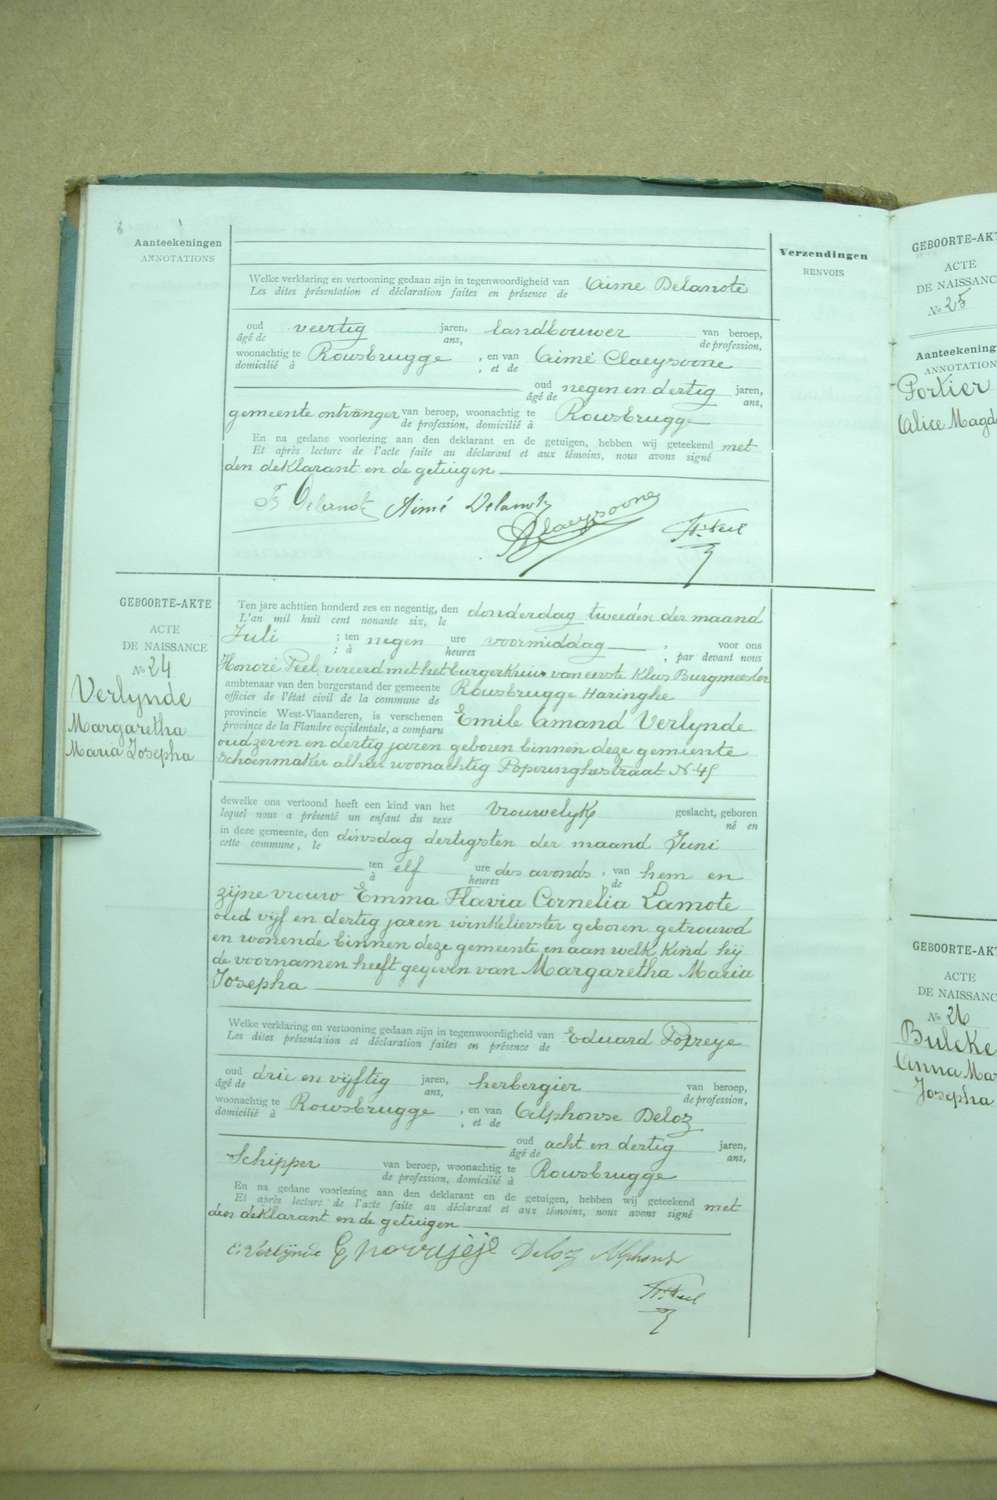 6
Aanteekeningen
ANNOTATIONS
Verzendingen
RENVOIS
Welke verklaring en vertooning gedaan zijn in tegenwoordigheid van Aimé Delanote
Les dites présentation et déclaration faites en présence de
oud veertig jaren, landbouwer van beroep,
âgé de ans, de profession,
woonachtig te Rousbrugge , en van Aimé Claeysoone
domicilié à , et de
oud negen en dertig jaren,
âgé de ans,
gemeente ontvanger van beroep, woonachtig te Rousbrugge
de profession, domicilié à
En na gedane voorlezing aan den deklarant en de getuigen, hebben wij geteekend met
Et après lecture de l'acte faite au déclarant et aux témoins, nous avons signé
den deklarant en de getuigen
Delanote Aimé Delanote
AClaeysoone
H. Peel
GEBOORTE-AKTE
ACTE
DE NAISSANCE
No 24
Verlynde
Margaretha
Maria Josepha
Ten jare achttien honderd zes en negentig, den donderdag tweeden der maand
L'an mil huit cent nonante six, le
Juli ; ten negen ure voormiddag , voor ons
; à heures , par devant nous
Honoré Peel, vereerd met het burgerkruis van eerste klas Burgmeester
ambtenaar van den burgerstand der gemeente Rousbrugge Haringhe
officier de l'état civil de la commune de
provincie West-Vlaanderen, is verschenen Emile Amand Verlynde
province de la Flandre occidentale, a comparu
oud zeven en dertig jaren geboren binnen deze gemeente
Schoenmaker alhier woonachtig Poperinghestraat N 45
dewelke ons vertoond heeft een kind van het vrouwelyk geslacht, geboren
lequel nous a présenté un enfant du sexe né en
in deze gemeente, den dinsdag dertigsten der maand Juni
cette commune, le
ten elf ure des avonds , van hem en
à heures de
zijne vrouw Emma Flavia Cornelia Lamote
oud vijf en dertig jaren winkelierster geboren getrouwd
en wonende binnen deze gemeente en aan welk kind hij
de voornamen heeft gegeven van Margaretha Maria
Josepha
Welke verklaring en vertooning gedaan zijn in tegenwoordigheid van Eduard Porreye
Les dites présentation et déclaration faites en présence de
oud drie en vijftig jaren, herbergier van beroep,
âgé de ans, de profession,
woonachtig te Rousbrugge , en van Alphonse Deloz
domicilié à , et de
oud acht en dertig jaren,
âgé de ans,
Schipper van beroep, woonachtig te Rousbrugge
de profession, domicilié à
En na gedane voorlezing aan den deklarant en de getuigen, hebben wij geteekend met
Et après lecture de l'acte faite au déclarant et aux témoins, nous avons signé
den deklarant en de getuigen
E. Verlynde Deloz Alphons
H. Peel
GEBOORTE-AKT
ACTE
DE NAISSANC
No 25
Aanteekening
ANNOTATION
Portier
Alice Magd
GEBOORTE-AKT
ACTE
DE NAISSANC
No 26
Bulcke
Anna Mar
Josepha